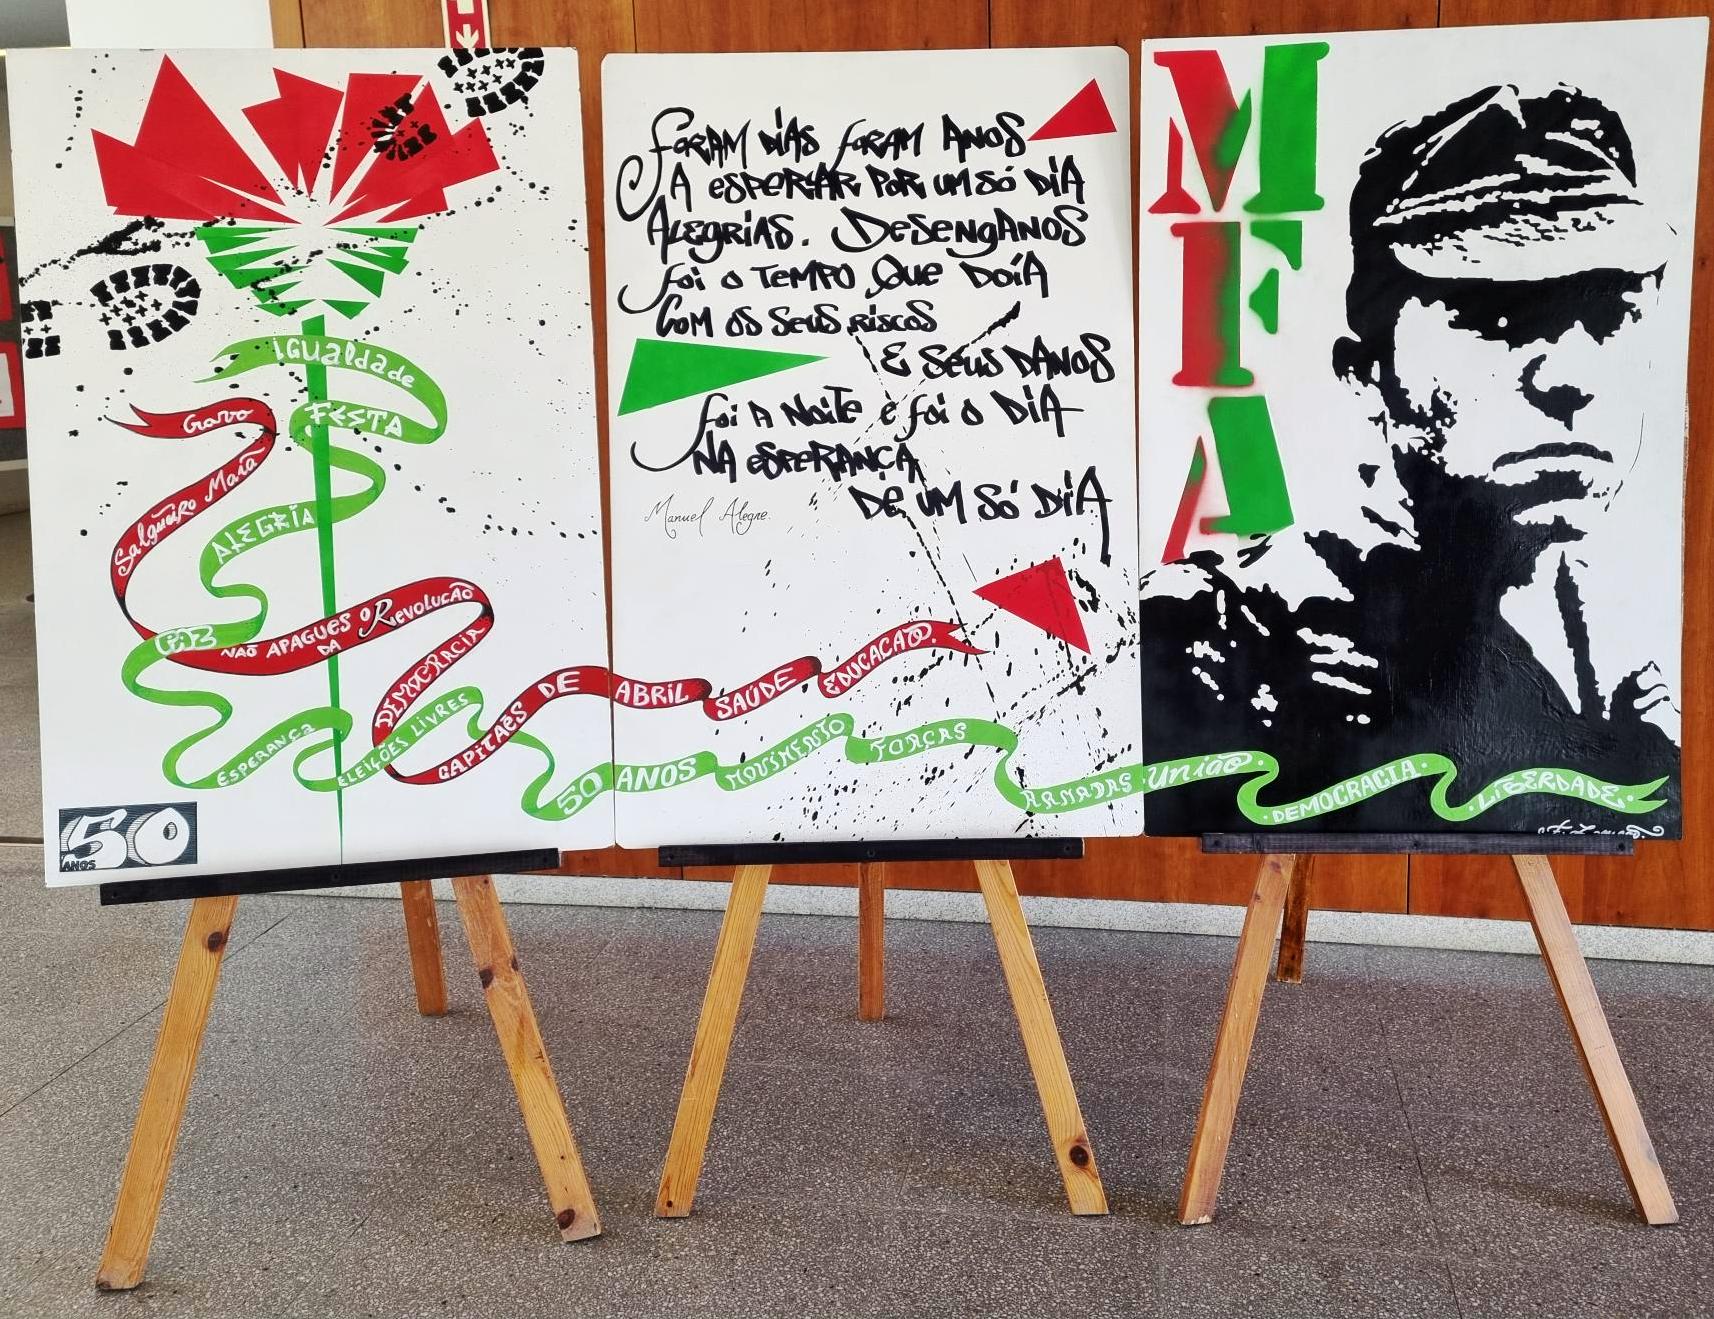 Igualdade
FESTA
ALEGRIA
PAZ
ESPERANÇA
ELEIÇÕES LIVRES
50 ANOS
MOVIMENTO
FORÇAS
ARMADAS
União
DEMOCRACIA
LiBERDADE
Cravo
Salgueiro Maia
NÃO APAGUES O
DA
Revolução
DEMOCRACIA
CAPITAẽS
DE
ABRIL
SAÚDE
EDUCAÇÃO.
50
ANOS
Foram dias foram anos
A esperar por um só dia
Alegrias. Desenganos
Foi o tempo que doía
Com os seus riscos
E seus danos
Foi a noite e foi o dia
Na esperança
De um só dia
Manuel Alegre.
MFA